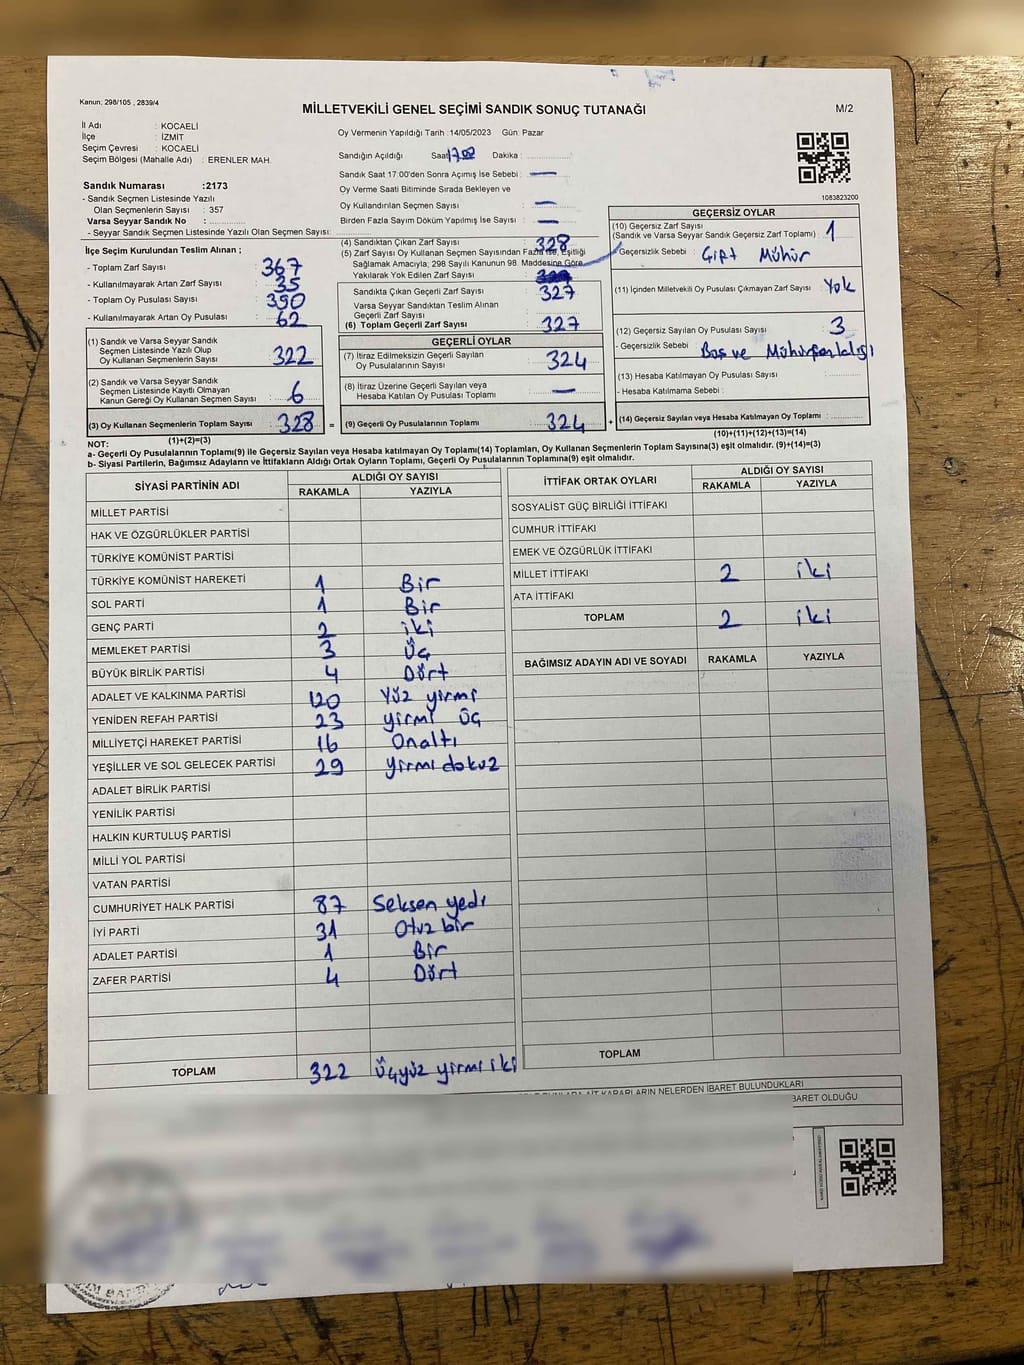 Kanun; 298/105 , 2839/4
MİLLETVEKİLİ GENEL SEÇİMİ SANDIK SONUÇ TUTANAĞI
M/2
İl Adı : KOCAELİ
İlçe : İZMİT
Seçim Çevresi : KOCAELİ
Seçim Bölgesi (Mahalle Adı) : ERENLER MAH.
Sandık Numarası :2173
- Sandık Seçmen Listesinde Yazılı
Olan Seçmenlerin Sayısı : 357
Varsa Seyyar Sandık No :
- Seyyar Sandık Seçmen Listesinde Yazılı Olan Seçmen Sayısı:
Oy Vermenin Yapıldığı Tarih :14/05/2023 Gün: Pazar
Sandığın Açıldığı Saat: 17.00 Dakika :
Sandık Saat 17.00'den Sonra Açımış İse Sebebi : —
Oy Verme Saati Bitiminde Sırada Bekleyen ve
Oy Kullandırılan Seçmen Sayısı : —
Birden Fazla Sayım Döküm Yapılmış İse Sayısı : —
1083823200
İlçe Seçim Kurulundan Teslim Alınan ;
- Toplam Zarf Sayısı : 367
- Kullanılmayarak Artan Zarf Sayısı : 35
- Toplam Oy Pusulası Sayısı : 390
- Kullanılmayarak Artan Oy Pusulası : 62
(1) Sandık ve Varsa Seyyar Sandık
Seçmen Listesinde Yazılı Olup
Oy Kullanan Seçmenlerin Sayısı : 322
(2) Sandık ve Varsa Seyyar Sandık
Seçmen Listesinde Kayıtlı Olmayan
Kanun Gereği Oy Kullanan Seçmen Sayısı : 6
(3) Oy Kullanan Seçmenlerin Toplam Sayısı : 328 =
(4) Sandıktan Çıkan Zarf Sayısı : 328
(5) Zarf Sayısı Oy Kullanan Seçmen Sayısından Fazla ise, Eşitliği
Sağlamak Amacıyla; 298 Sayılı Kanunun 98. Maddesine Göre
Yakılarak Yok Edilen Zarf Sayısı :
Sandıkta Çıkan Geçerli Zarf Sayısı : 327
Varsa Seyyar Sandıktan Teslim Alınan
Geçerli Zarf Sayısı :
(6) Toplam Geçerli Zarf Sayısı : 327
GEÇERLİ OYLAR
(7) İtiraz Edilmeksizin Geçerli Sayılan
Oy Pusulalarının Sayısı : 324
(8) İtiraz Üzerine Geçerli Sayılan veya
Hesaba Katılan Oy Pusulası Toplamı : —
(9) Geçerli Oy Pusulalarının Toplamı : 324 +
GEÇERSİZ OYLAR
(10) Geçersiz Zarf Sayısı
(Sandık ve Varsa Seyyar Sandık Geçersiz Zarf Toplamı) : 1
Geçersizlik Sebebi : Çift Mühür
(11) İçinden Milletvekili Oy Pusulası Çıkmayan Zarf Sayısı : Yok
(12) Geçersiz Sayılan Oy Pusulası Sayısı : 3
- Geçersizlik Sebebi : Boş ve
(13) Hesaba Katılmayan Oy Pusulası Sayısı :
- Hesaba Katılmama Sebebi :
(14) Geçersiz Sayılan veya Hesaba Katılmayan Oy Toplamı :
(1)+(2)=(3)
(10)+(11)+(12)+(13)=(14)
NOT:
a- Geçerli Oy Pusulalarının Toplamı(9) ile Geçersiz Sayılan veya Hesaba katılmayan Oy Toplamı(14) Toplamları, Oy Kullanan Seçmenlerin Toplam Sayısına(3) eşit olmalıdır. (9)+(14)=(3)
b- Siyasi Partilerin, Bağımsız Adayların ve İttifakların Aldığı Ortak Oyların Toplamı, Geçerli Oy Pusulalarının Toplamına(9) eşit olmalıdır.
SİYASİ PARTİNİN ADI ALDIĞI OY SAYISI
RAKAMLA YAZIYLA
MİLLET PARTİSİ
HAK VE ÖZGÜRLÜKLER PARTİSİ
TÜRKİYE KOMÜNİST PARTİSİ
TÜRKİYE KOMÜNİST HAREKETİ 1 Bir
SOL PARTİ 1 Bir
GENÇ PARTİ 2 iki
MEMLEKET PARTİSİ 3 Üç
BÜYÜK BİRLİK PARTİSİ 4 Dört
ADALET VE KALKINMA PARTİSİ 120 Yüz yirmi
YENİDEN REFAH PARTİSİ 23 yirmi üç
MİLLİYETÇİ HAREKET PARTİSİ 16 Onaltı
YEŞİLLER VE SOL GELECEK PARTİSİ 29 yirmi dokuz
ADALET BİRLİK PARTİSİ
YENİLİK PARTİSİ
HALKIN KURTULUŞ PARTİSİ
MİLLİ YOL PARTİSİ
VATAN PARTİSİ
CUMHURİYET HALK PARTİSİ 87 Seksen yedi
İYİ PARTİ 31 Otuz bir
ADALET PARTİSİ 1 Bir
ZAFER PARTİSİ 4 Dört
TOPLAM 322 Üçyüz yirmi iki
İTTİFAK ORTAK OYLARI ALDIĞI OY SAYISI
RAKAMLA YAZIYLA
SOSYALİST GÜÇ BİRLİĞİ İTTİFAKI
CUMHUR İTTİFAKI
EMEK VE ÖZGÜRLÜK İTTİFAKI
MİLLET İTTİFAKI 2 iki
ATA İTTİFAKI
TOPLAM 2 iki
BAĞIMSIZ ADAYIN ADI VE SOYADI RAKAMLA YAZIYLA
TOPLAM
KARARLARIN NELERDEN İBARET BULUNDUKLARI
BARET OLDUĞU